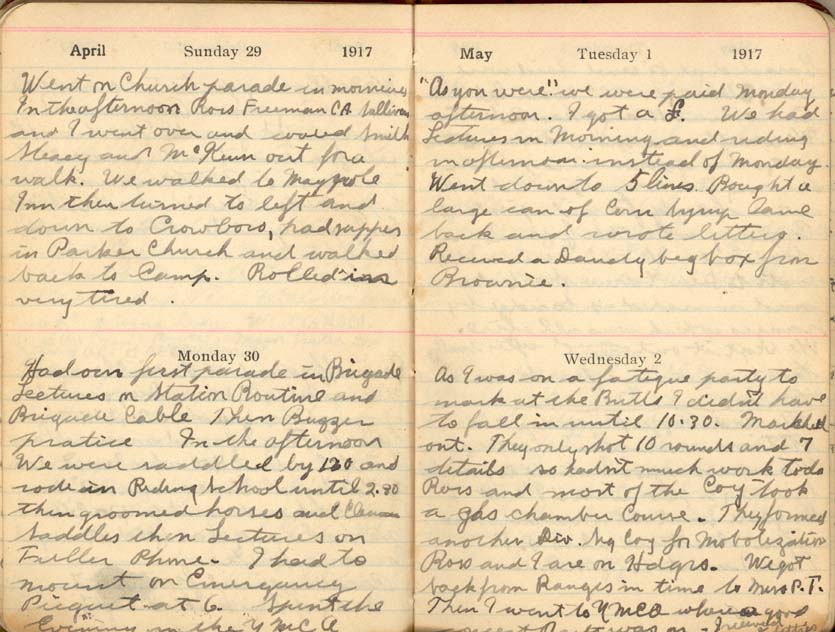 April Sunday 29 1917
Went on Church parade in morning
In the afternoon Ross Freeman CA Sullivan
and I went over and Smith
and McKeun out for a
walk. We walked to Maypole
Inn then turned to left and
down to Crowboro, had supper
in Parker Church and walked
back to Camp. Rolled in
very tired.
Monday 30
Had our first parade in Brigade
Lectures on Station Routine and
Brigade Cable Then Buzzer
pratice In the afternoon
We were saddled by 1 30 and
rode in Riding School until 2.30
then groomed horses and Clean
Saddles then Lectures on
Fuller Phone. I had to
mount on Emergency
Picquet at 6. Spent the
Evening in the YMCA
May Tuesday 1 1917
"As you were" we were paid Monday
afternoon. I got a £. We had
Lectures in Morning and riding
in afternoon instead of Monday.
Went down to 5 lines Bought a
large can of Corn Syrup Came
back and wrote letters.
Received a Dandy big box from
Brownie.
Wednesday 2
As I was on a fatigue party to
mark at the Butts I didn't have
to fall in until 10.30. Marched
out. They only shot 10 rounds and 7
details so hadn't much work to do
Ross and most of the Coy took
a gas chamber Course. They formed
another Div. Sig Coy for Mobolization
Ross and I are on Hdqrs. We got
back from Ranges in time to Miss P.T.
Then I went to YMCA where a good
concert Party was on